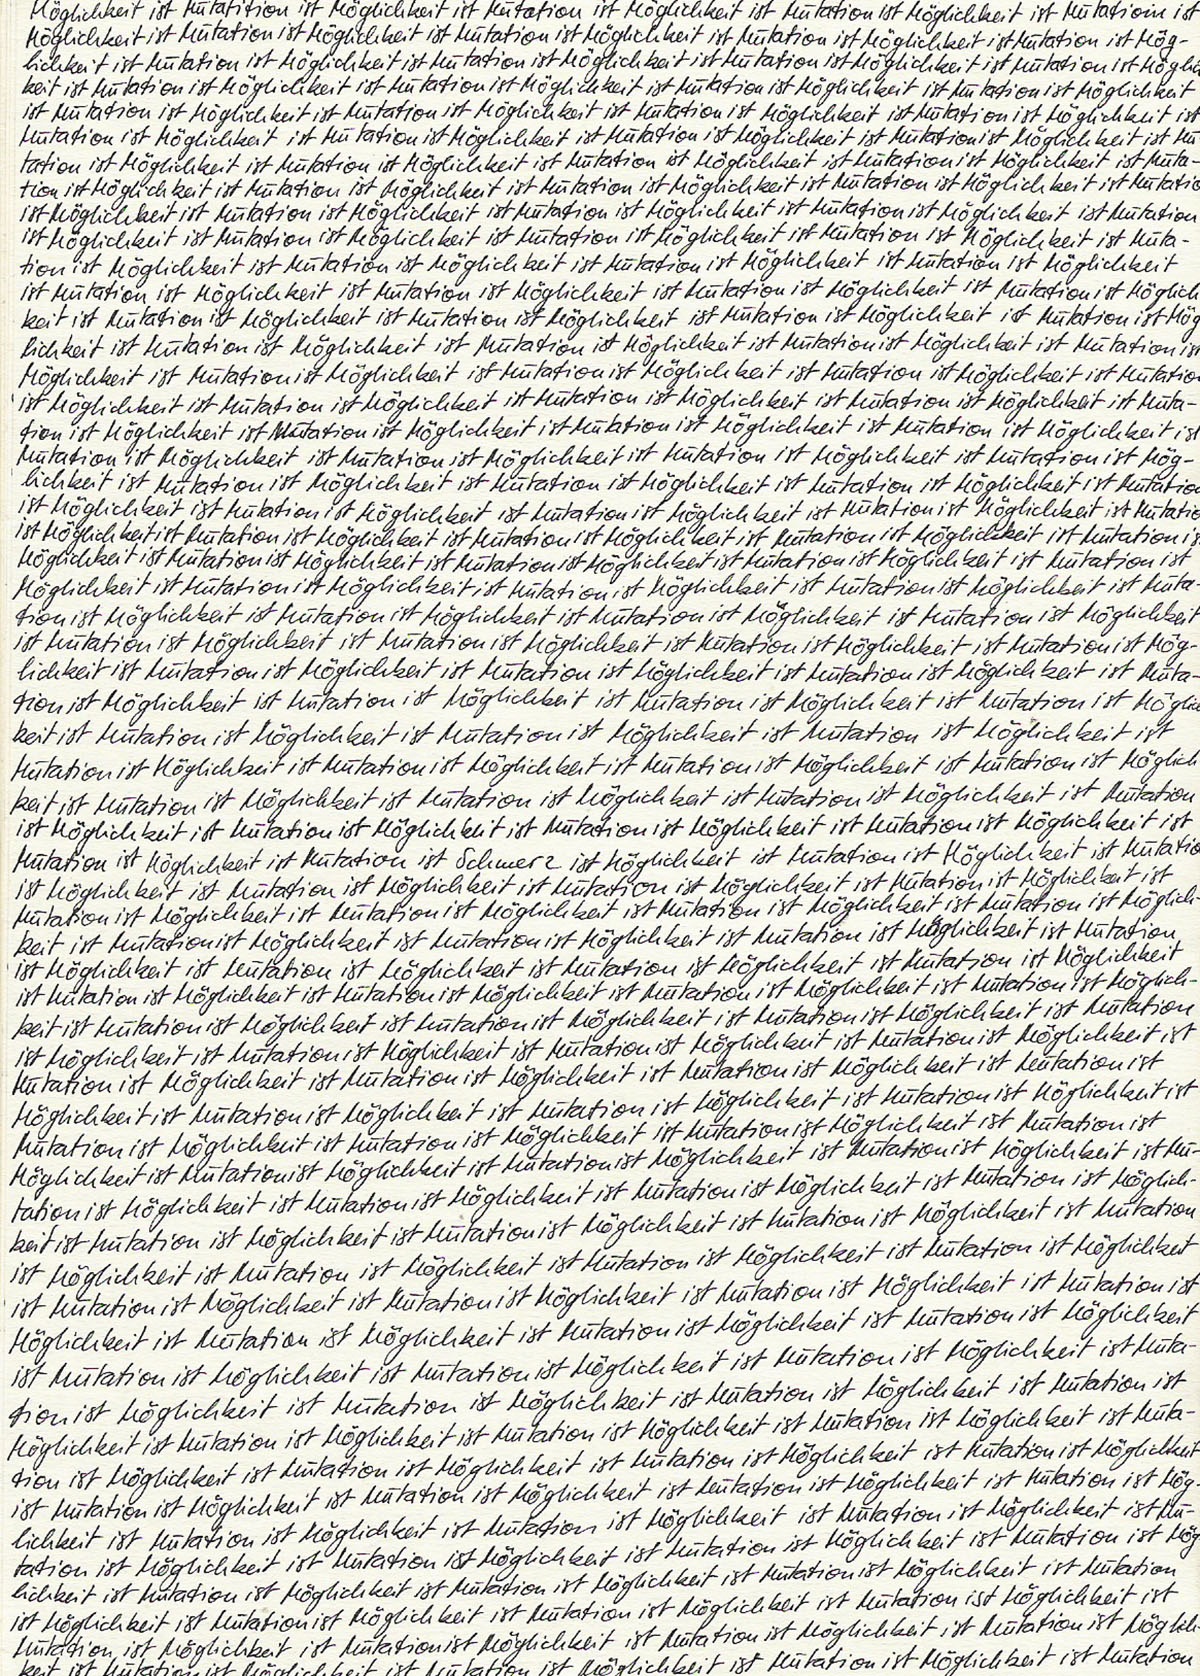 Möglichkeit ist Mutatitition ist Möglichkeit ist Mutation ist Möglichkeit ist Mutation ist Möglichkeit ist Mutation ist
Möglichkeit ist Mutation ist Möglichkeit ist Mutation ist Möglichkeit ist Mutation ist Möglichkeit ist Mutation ist Mög-
lichkeit ist Mutation ist Möglichkeit ist Mutation ist Möglichkeit ist Mutation ist Möglichkeit ist Mutation ist Möglich
keit ist Mutation ist Möglichkeit ist Mutation ist Möglichkeit ist Mutation ist Möglichkeit ist Mutation ist Möglichkeit
ist Mutation ist Möglichkeit ist Mutation ist Möglichkeit ist Mutation ist Möglichkeit ist Mutation ist Möglichkeit ist
Mutation ist Möglichkeit ist Mutation ist Möglichkeit ist Mutation ist Möglichkeit ist Mutation ist Möglichkeit ist Mu
tation ist Möglichkeit ist Mutation ist Möglichkeit ist Mutation ist Möglichkeit ist Mutation ist Möglichkeit ist Muta-
tion ist Möglichkeit ist Mutation ist Möglichkeit ist Mutation ist Möglichkeit ist Mutation ist Möglichkeit ist Mutatio
ist Möglichkeit ist Mutation ist Möglichkeit ist Mutation ist Möglichkeit ist Mutation ist Möglichkeit ist Mutation
ist Möglichkeit ist Mutation ist Möglichkeit ist Mutation ist Möglichkeit ist Mutation ist Möglichkeit ist Muta-
tion ist Möglichkeit ist Mutation ist Möglichkeit ist Mutation ist Möglichkeit ist Mutation ist Möglichkeit
ist Mutation ist Möglichkeit ist Mutation ist Möglichkeit ist Mutation ist Möglichkeit ist Mutation ist Möglich
keit ist Mutation ist Möglichkeit ist Mutation ist Möglichkeit ist Mutation ist Möglichkeit ist Mutation ist Mög
lichkeit ist Mutation ist Möglichkeit ist Mutation ist Möglichkeit ist Mutation ist Möglichkeit ist Mutation ist
Möglichkeit ist Mutation ist Möglichkeit ist Mutation ist Möglichkeit ist Mutation ist Möglichkeit ist Mutation
ist Möglichkeit ist Mutation ist Möglichkeit ist Mutation ist Möglichkeit ist Mutation ist Möglichkeit ist Muta-
tion ist Möglichkeit ist Mutation ist Möglichkeit ist Mutation ist Möglichkeit ist Mutation ist Möglichkeit ist
Mutation ist Möglichkeit ist Mutation ist Möglichkeit ist Mutation ist Möglichkeit ist Mutation ist Mög-
lichkeit ist Mutation ist Möglichkeit ist Mutation ist Möglichkeit ist Mutation ist Möglichkeit ist Mutation
ist Möglichkeit ist Mutation ist Möglichkeit ist Mutation ist Möglichkeit ist Mutation ist Möglichkeit ist Mutatio
ist Möglichkeit ist Mutation ist Möglichkeit ist Mutation ist Möglichkeit ist Mutation ist Möglichkeit ist Mutation is
Möglichkeit ist Mutation ist Möglichkeit ist Mutation ist Möglichkeit ist Mutation ist Möglichkeit ist Mutation ist
Möglichkeit ist Mutation ist Möglichkeit ist Mutation ist Möglichkeit ist Mutation ist Möglichkeit ist Muta-
tion ist Möglichkeit ist Mutation ist Möglichkeit ist Mutation ist Möglichkeit ist Mutation ist Möglichkeit
ist Mutation ist Möglichkeit ist Mutation ist Möglichkeit ist Mutation ist Möglichkeit ist Mutation ist Mög-
lichkeit ist Mutation ist Möglichkeit ist Mutation ist Möglichkeit ist Mutation ist Möglichkeit ist Muta-
tion ist Möglichkeit ist Mutation ist Möglichkeit ist Mutation ist Möglichkeit ist Mutation ist Möglich
keit ist Mutation ist Möglichkeit ist Mutation ist Möglichkeit ist Mutation ist Möglichkeit ist
Mutation ist Möglichkeit ist Mutation ist Möglichkeit ist Mutation ist Möglichkeit ist Mutation ist Möglich
keit ist Mutation ist Möglichkeit ist Mutation ist Möglichkeit ist Mutation ist Möglichkeit ist Mutation
ist Möglichkeit ist Mutation ist Möglichkeit ist Mutation ist Möglichkeit ist Mutation ist Möglichkeit ist
Mutation ist Möglichkeit ist Mutation ist Schmerz ist Möglichkeit ist Mutation ist Möglichkeit ist Mutatio
ist Möglichkeit ist Mutation ist Möglichkeit ist Mutation ist Möglichkeit ist Mutation ist Möglichkeit ist
Mutation ist Möglichkeit ist Mutation ist Möglichkeit ist Mutation ist Möglichkeit ist Mutation ist Möglich-
keit ist Mutation ist Möglichkeit ist Mutation ist Möglichkeit ist Mutation ist Möglichkeit ist Mutation
ist Möglichkeit ist Mutation ist Möglichkeit ist Mutation ist Möglichkeit ist Mutation ist Möglichkeit
ist Mutation ist Möglichkeit ist Mutation ist Möglichkeit ist Mutation ist Möglichkeit ist Mutation ist Möglich-
keit ist Mutation ist Möglichkeit ist Mutation ist Möglichkeit ist Mutation ist Möglichkeit ist Mutation
ist Möglichkeit ist Mutation ist Möglichkeit ist Mutation ist Möglichkeit ist Mutation ist Möglichkeit ist
Mutation ist Möglichkeit ist Mutation ist Möglichkeit ist Mutation ist Möglichkeit ist Mutation ist
Möglichkeit ist Mutation ist Möglichkeit ist Mutation ist Möglichkeit ist Mutation ist Möglichkeit ist
Mutation ist Möglichkeit ist Mutation ist Möglichkeit ist Mutation ist Möglichkeit ist Mutation ist
Möglichkeit ist Mutation ist Möglichkeit ist Mutation ist Möglichkeit ist Mutation ist Möglichkeit ist Mu-
tation ist Möglichkeit ist Mutation ist Möglichkeit ist Mutation ist Möglichkeit ist Mutation ist Möglich-
keit ist Mutation ist Möglichkeit ist Mutation ist Möglichkeit ist Mutation ist Möglichkeit ist Mutation
ist Möglichkeit ist Mutation ist Möglichkeit ist Mutation ist Möglichkeit ist Mutation ist Möglichkeit
ist Mutation ist Möglichkeit ist Mutation ist Möglichkeit ist Mutation ist Möglichkeit ist Mutation ist
Möglichkeit ist Mutation ist Möglichkeit ist Mutation ist Möglichkeit ist Mutation ist Möglichkeit
ist Mutation ist Möglichkeit ist Mutation ist Möglichkeit ist Mutation ist Möglichkeit ist Muta-
tion ist Möglichkeit ist Mutation ist Möglichkeit ist Mutation ist Möglichkeit ist Mutation ist
Möglichkeit ist Mutation ist Möglichkeit ist Mutation ist Möglichkeit ist Mutation ist Möglichkeit ist Muta-
tion ist Möglichkeit ist Mutation ist Möglichkeit ist Mutation ist Möglichkeit ist Mutation ist Möglichkeit
ist Mutation ist Möglichkeit ist Mutation ist Möglichkeit ist Mutation ist Möglichkeit ist Mutation ist Mög-
lichkeit ist Mutation ist Möglichkeit ist Mutation ist Möglichkeit ist Mutation ist Möglichkeit ist Mu-
tation ist Möglichkeit ist Mutation ist Möglichkeit ist Mutation ist Möglichkeit ist Mutation ist Mög
lichkeit ist Mutation ist Möglichkeit ist Mutation ist Möglichkeit ist Mutation ist Möglichkeit ist Mutation
ist Möglichkeit ist Mutation ist Möglichkeit ist Mutation ist Möglichkeit ist Mutation ist Möglichkeit ist
Mutation ist Möglichkeit ist Mutation ist Möglichkeit ist Mutation ist Möglichkeit ist Mutation ist Möglich-
keit ist Mutation ist Möglichkeit ist Mutation ist Möglichkeit ist Mutation ist Möglichkeit ist Mutation